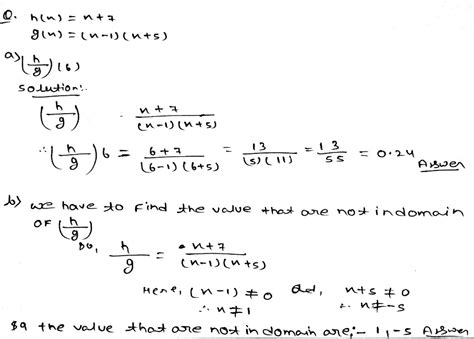 Q. h(n) = n+7
g(n) = (n-1)(n+5)
a) (h/g)(6)
Solution:.
(h/g) . n+7/(n-1)(n+5)
∴ (h/g)6 = 6+7/(6-1)(6+5) = 13/(5)(11) = 13/55 = 0.24 Answer
b) we have to Find the value that are not in domain
OF (h/g)
so, h/g = n+7/(n-1)(n+5)
Here, (n-1) ≠ 0 And, n+5 ≠ 0
∴ n≠1 ∴ n≠-5
So the value that are not in domain are;- 1,-5 Answer